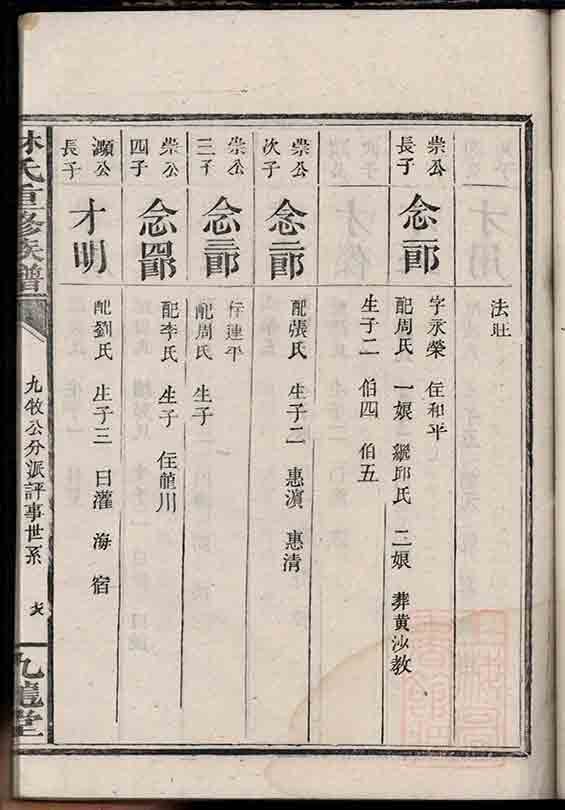 法旺
崇公
長子
念一郎
字永榮 住和平
配周氏 一娘 繼邱氏 二娘 葬黃沙教
生子二 伯四 伯五
崇公
次子
念二郎
配張氏 生子二 惠濵 惠清
崇公
三子
念三郎
住連平
配周氏 生子
崇公
四子
念四郎
配李氏 生子 住龍川
灝公
長子
才明
配劉氏 生子三 曰灌 海 宿
林氏重修族譜
九牧公分派評事世系
九龍堂